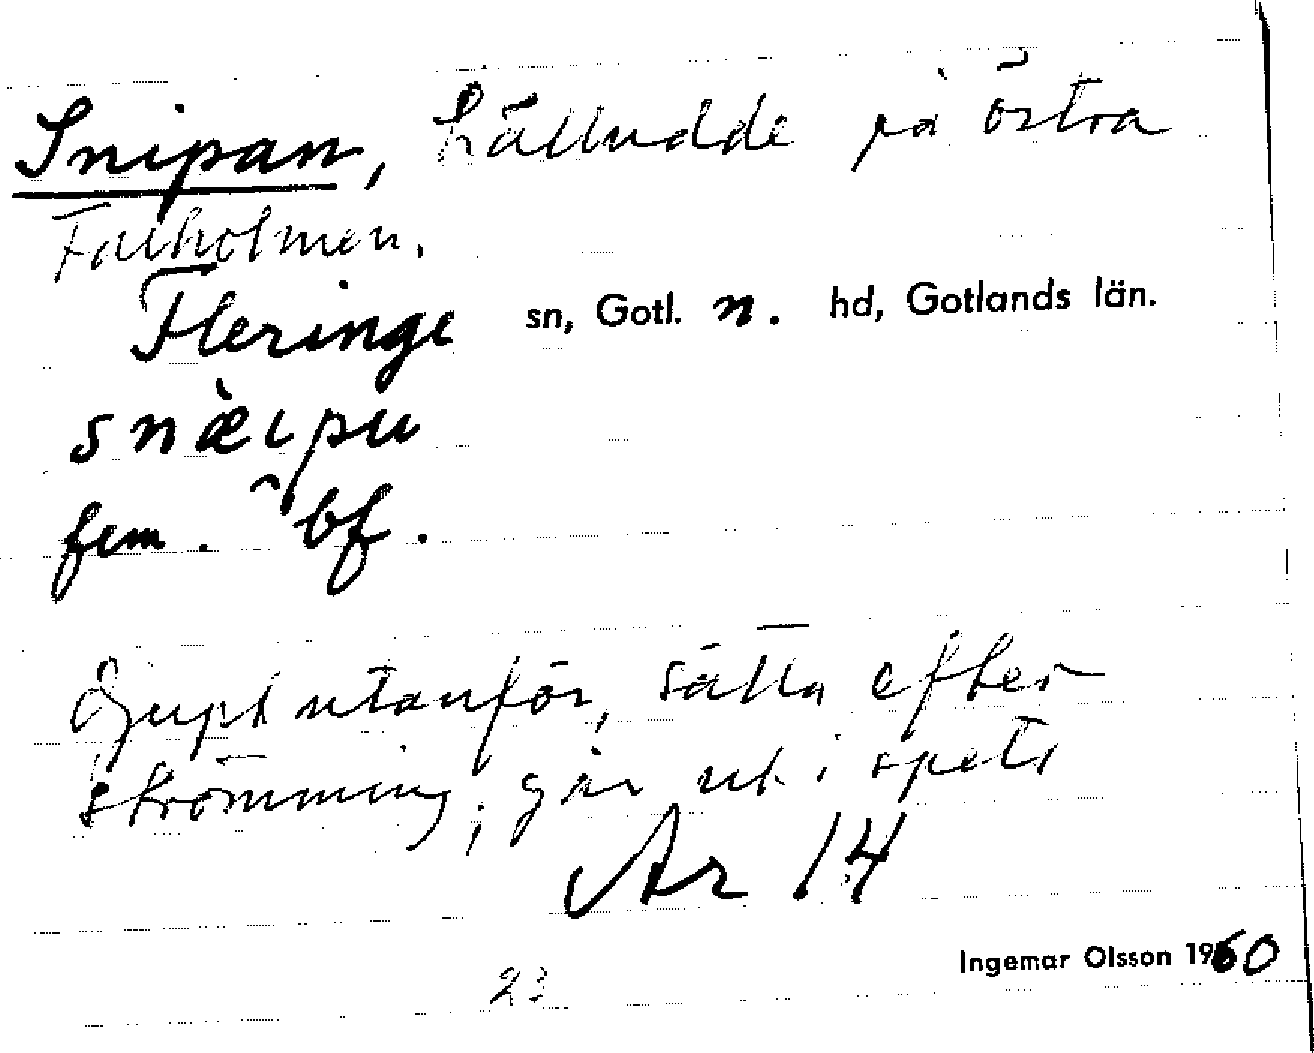 Snipan, hälludde på östra
Falholmen.
Fleringe sn, Gotl. n. hd, Gotlands län.
snæ̀ipu
fem. bf.
djupt utanför, sätta efter
strömming; går ut i spets
Ar 14
Ingemar Olsson 1960
23